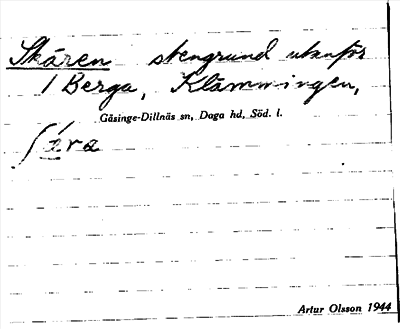 Skåren stengrund utanför
1 Berga, Klämmingen,
Gåsinge-Dillnäs sn, Daga hd, Söd. l.
Artur Olsson 1944